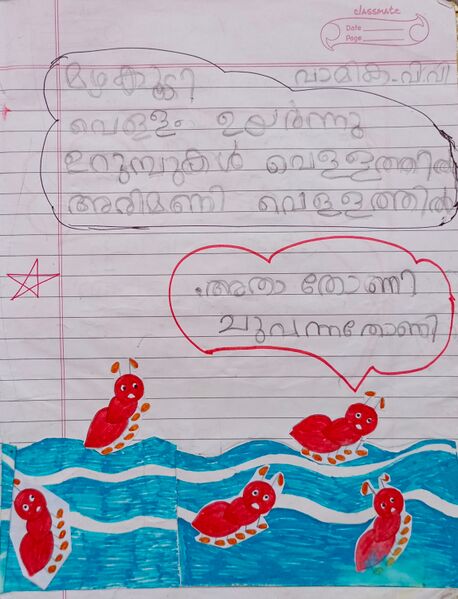 classmate
Date
Page
മഴകൂടി വാമിക.വി.വി
വെള്ളം ഉയർന്നു
ഉറുമ്പുകൾ വെള്ളത്തിൽ
അരിമണി വെള്ളത്തിൽ
അതാ തോണി
ചുവന്നതോണി